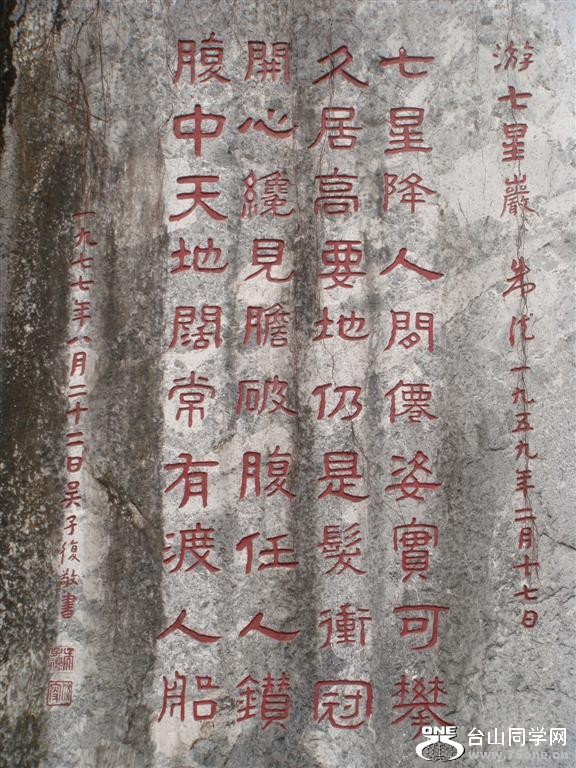 游七星巖 朱德一九五九年二月十七日
七星降人間僊姿實可攀
久居高要地仍是髮衝冠
開心纔見膽破腹任人鑚
腹中天地闊常有渡人船
一九七七年八月二十二日吴子復敬書
ONE
台山同学网